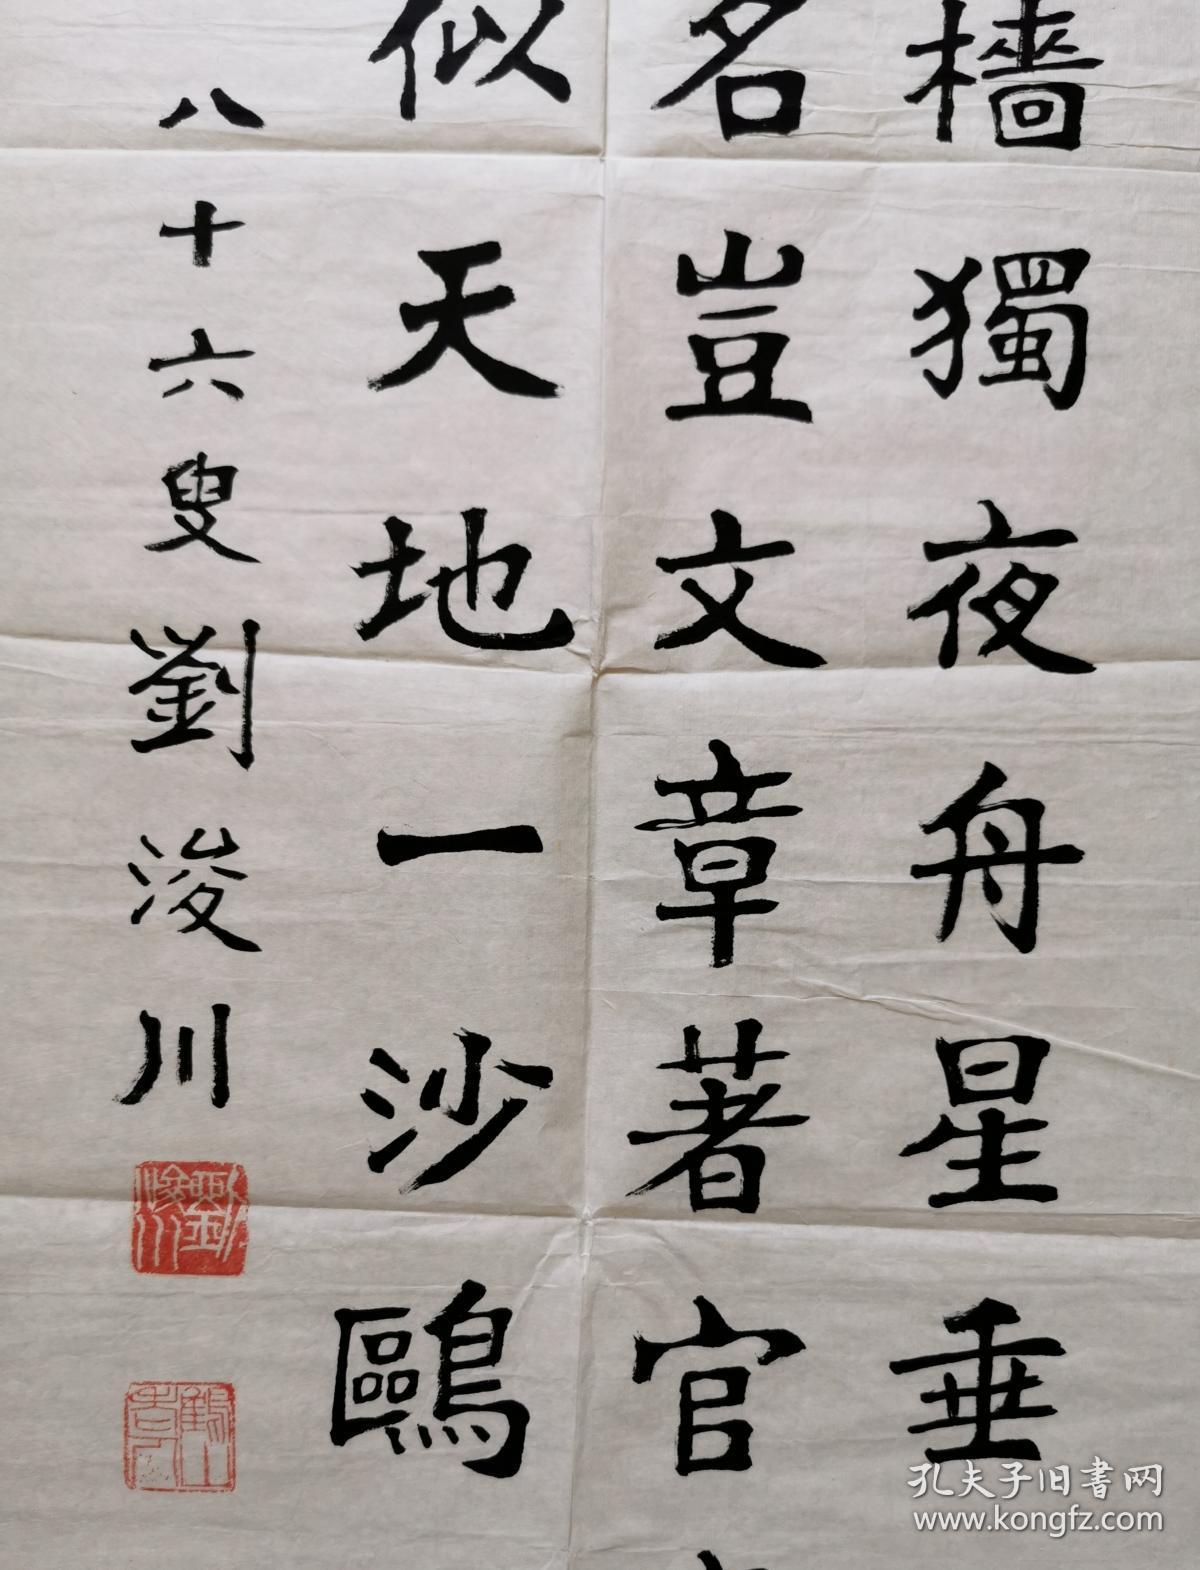 檣獨夜舟星垂
名豈文章著官
似天地一沙鷗
八十六叟劉浚川
劉浚川
孔夫子旧书网
www.kongfz.com